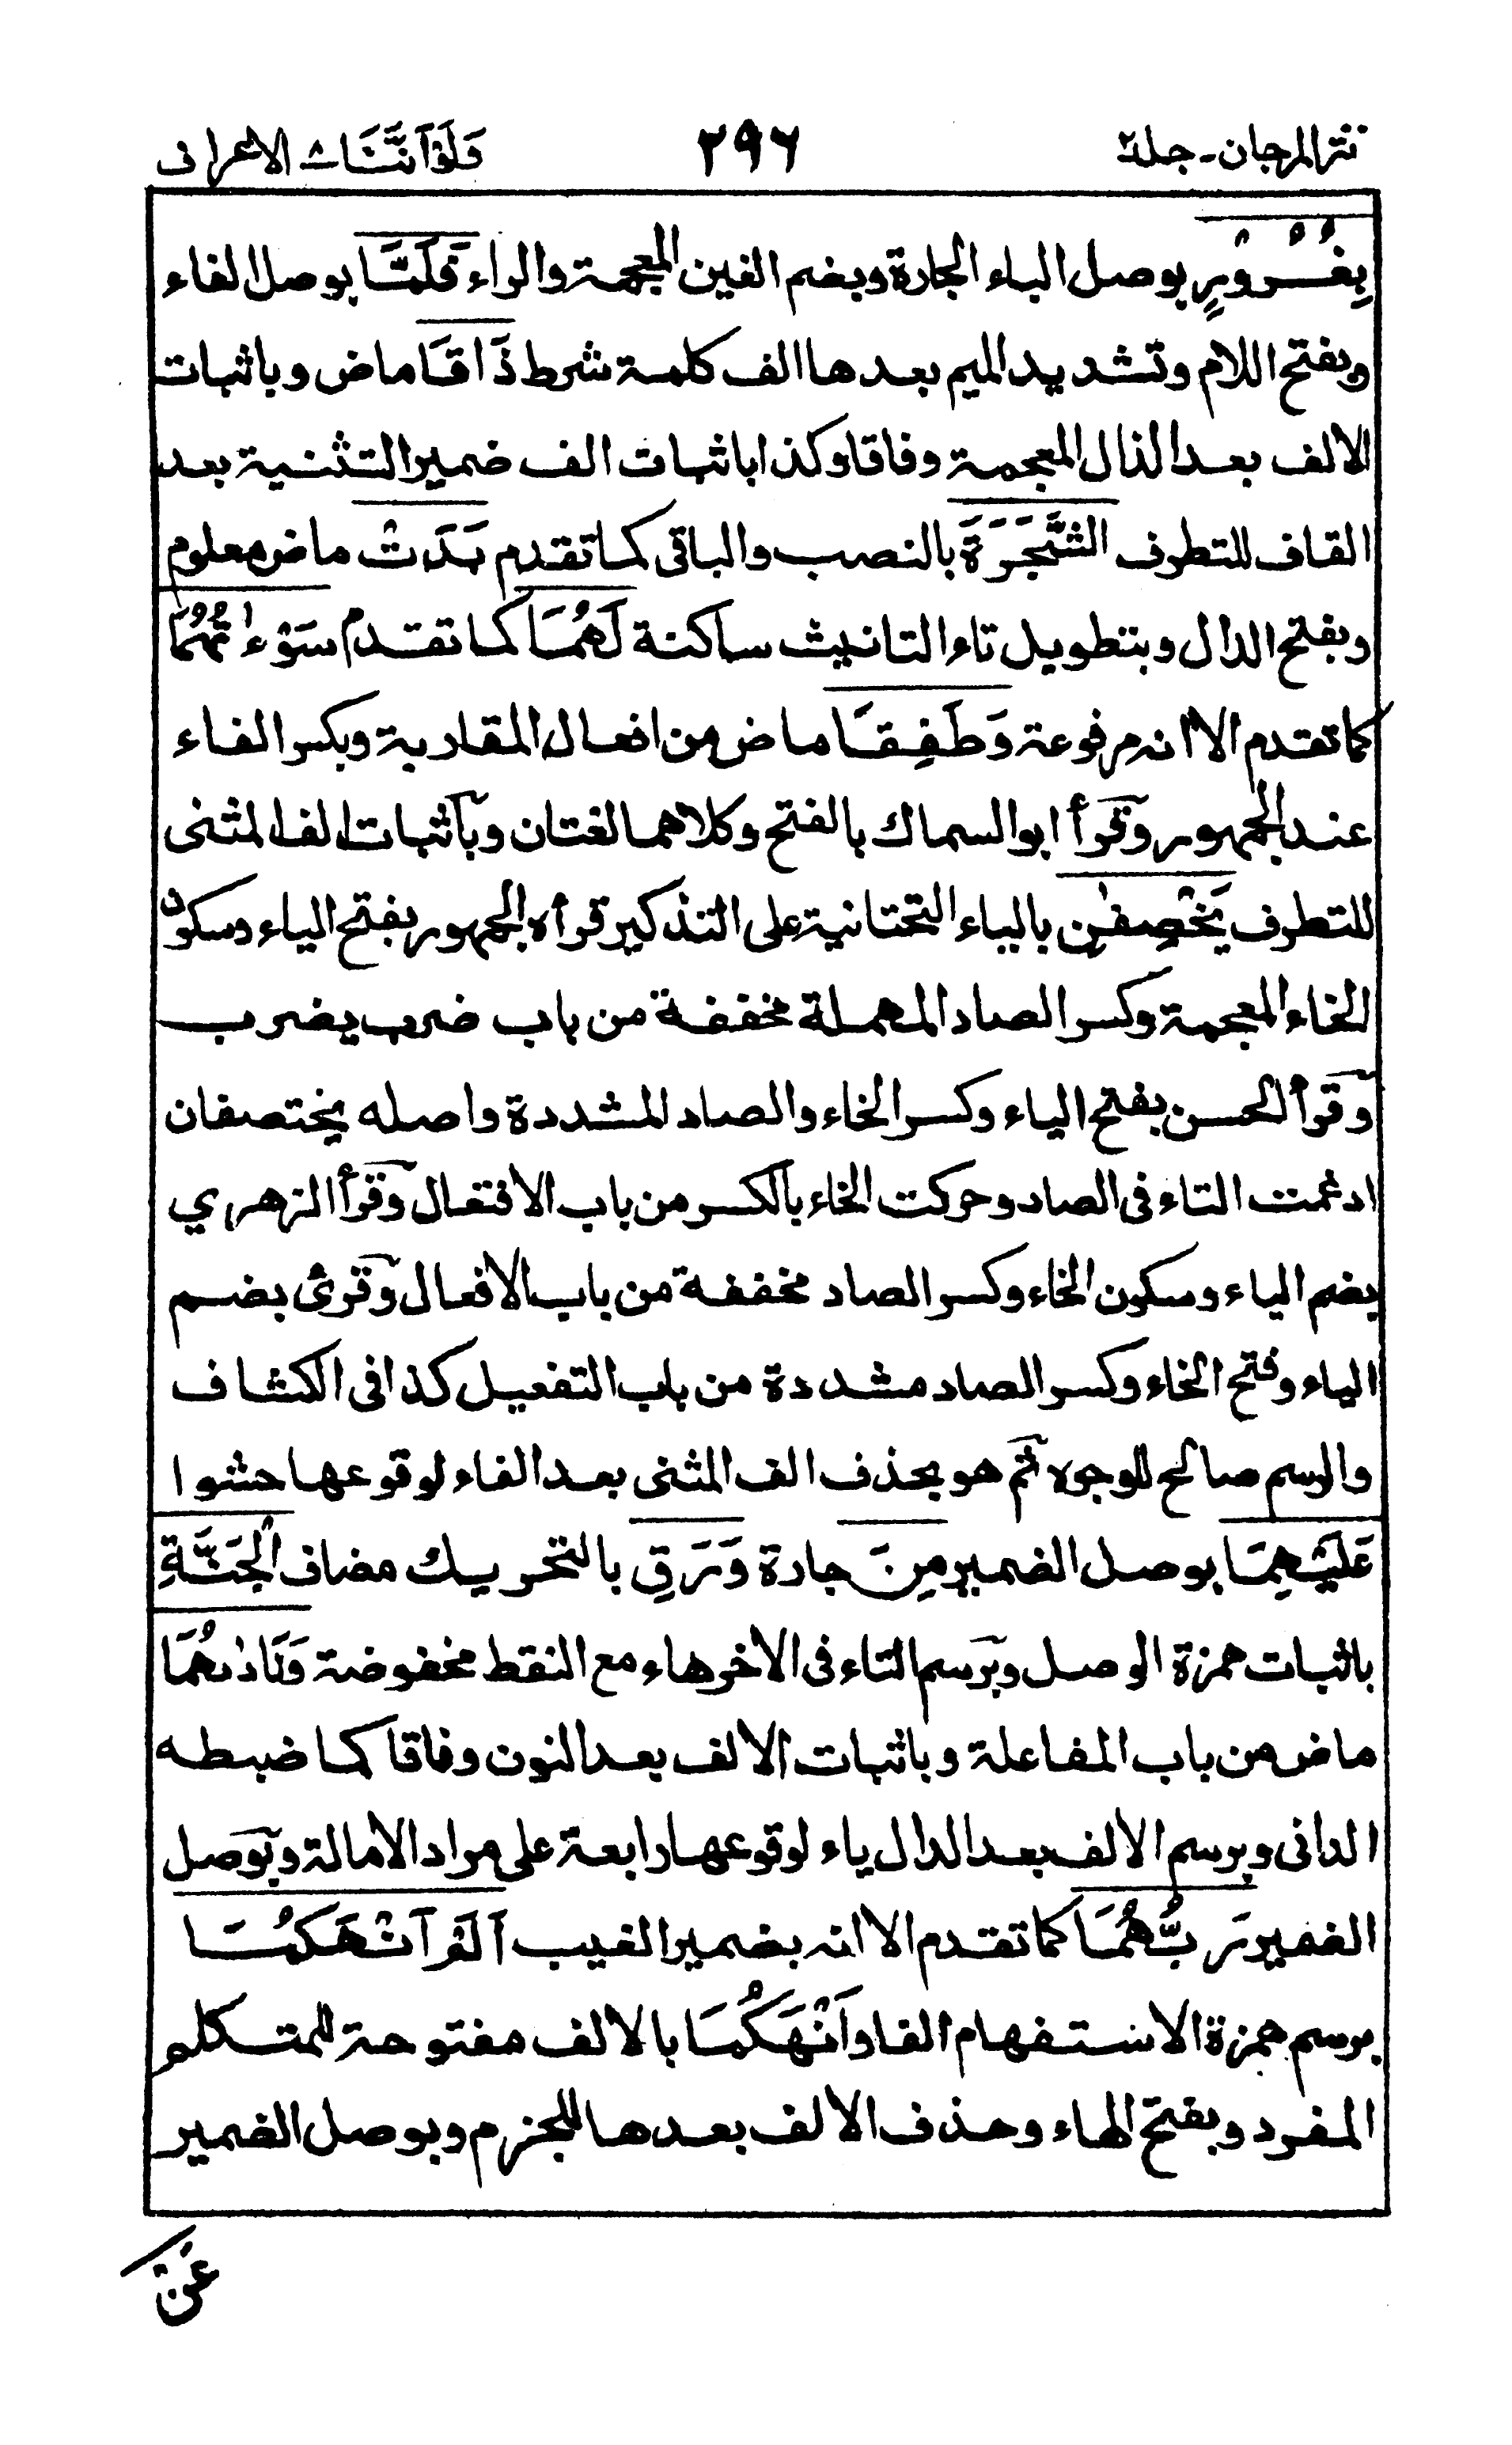 نثر المرجان - جلد٢ ٢٩٦ وَلَوْ اَنَّنَا ـ الاعراف
بِغُرُورٍ بوصل الباء الجارة وبضم الغين المعجمة والراء فَلَمَّا بوصل الفاء
وبفتح اللام وتشديد الميم بعدها الف كلمة شرط ذَاقَا ماض وباثبات
الالف بعد الذال المعجمة وفاقا وكذا باثبات الف ضمير التثنية بعد
القاف للتطرف الشَّجَرَةَ بالنصب والباقى كما تقدم بَدَتْ ماض معلوم
وبفتح الدال وبتطويل تاء التانيث ساكنة لَهُمَا كما تقدم سَوْءٰتُهُمَا
كما تقدم الا انه مرفوعة وَطَفِقَا ماض من افعال المقاربة وبكسر الفاء
عند الجمهور وقرأ ابو السماك بالفتح وكلاهما لغتان وباثبات الف المثنى
للتطرف يَخْصِفٰنِ بالياء التحتانية على التذكير قرأه الجمهور بفتح الياء وسكون
الخاء المعجمة وكسر الصاد المهملة مخففة من باب ضرب يضرب
وقرأ الحسن بفتح الياء وكسر الخاء والصاد المشددة واصله يختصفان
ادغمت التاء فى الصاد وحركت الخاء بالكسر من باب الافتعال وقرأ الزهري
بضم الياء وسكون الخاء وكسر الصاد مخففة من باب الافعال وقرئ بضم
الياء وفتح الخاء وكسر الصاد مشددة من باب التفعيل كذا فى الكشاف
والرسم صالح للوجوه ثم هو بحذف الف المثنى بعد الفاء لوقوعها حشوا
عَلَيْهِمَا بوصل الضمير مِنْ جارة وَرَقِ بالتحريك مضاف الْجَنَّةِ
باثبات همزة الوصل وبرسم التاء فى الاخر هاء مع النقط مخفوضة وَنَادٰىهُمَا
ماض من باب المفاعلة وباثبات الالف بعد النون وفاقا كما ضبطه
الدانى وبرسم الالف بعد الدال ياء لوقوعها رابعة على مراد الامالة وبوصل
الضمير رَبُّهُمَا كما تقدم الا انه بضمير الغيب اَلَمْ اَنْهَكُمَا
برسم همزة الاستفهام الفا وَاَنْهَكُمَا بالالف مفتوحة للمتكلم
المفرد وبفتح الهاء وحذف الالف بعدها للجزم وبوصل الضمير
عَنْ